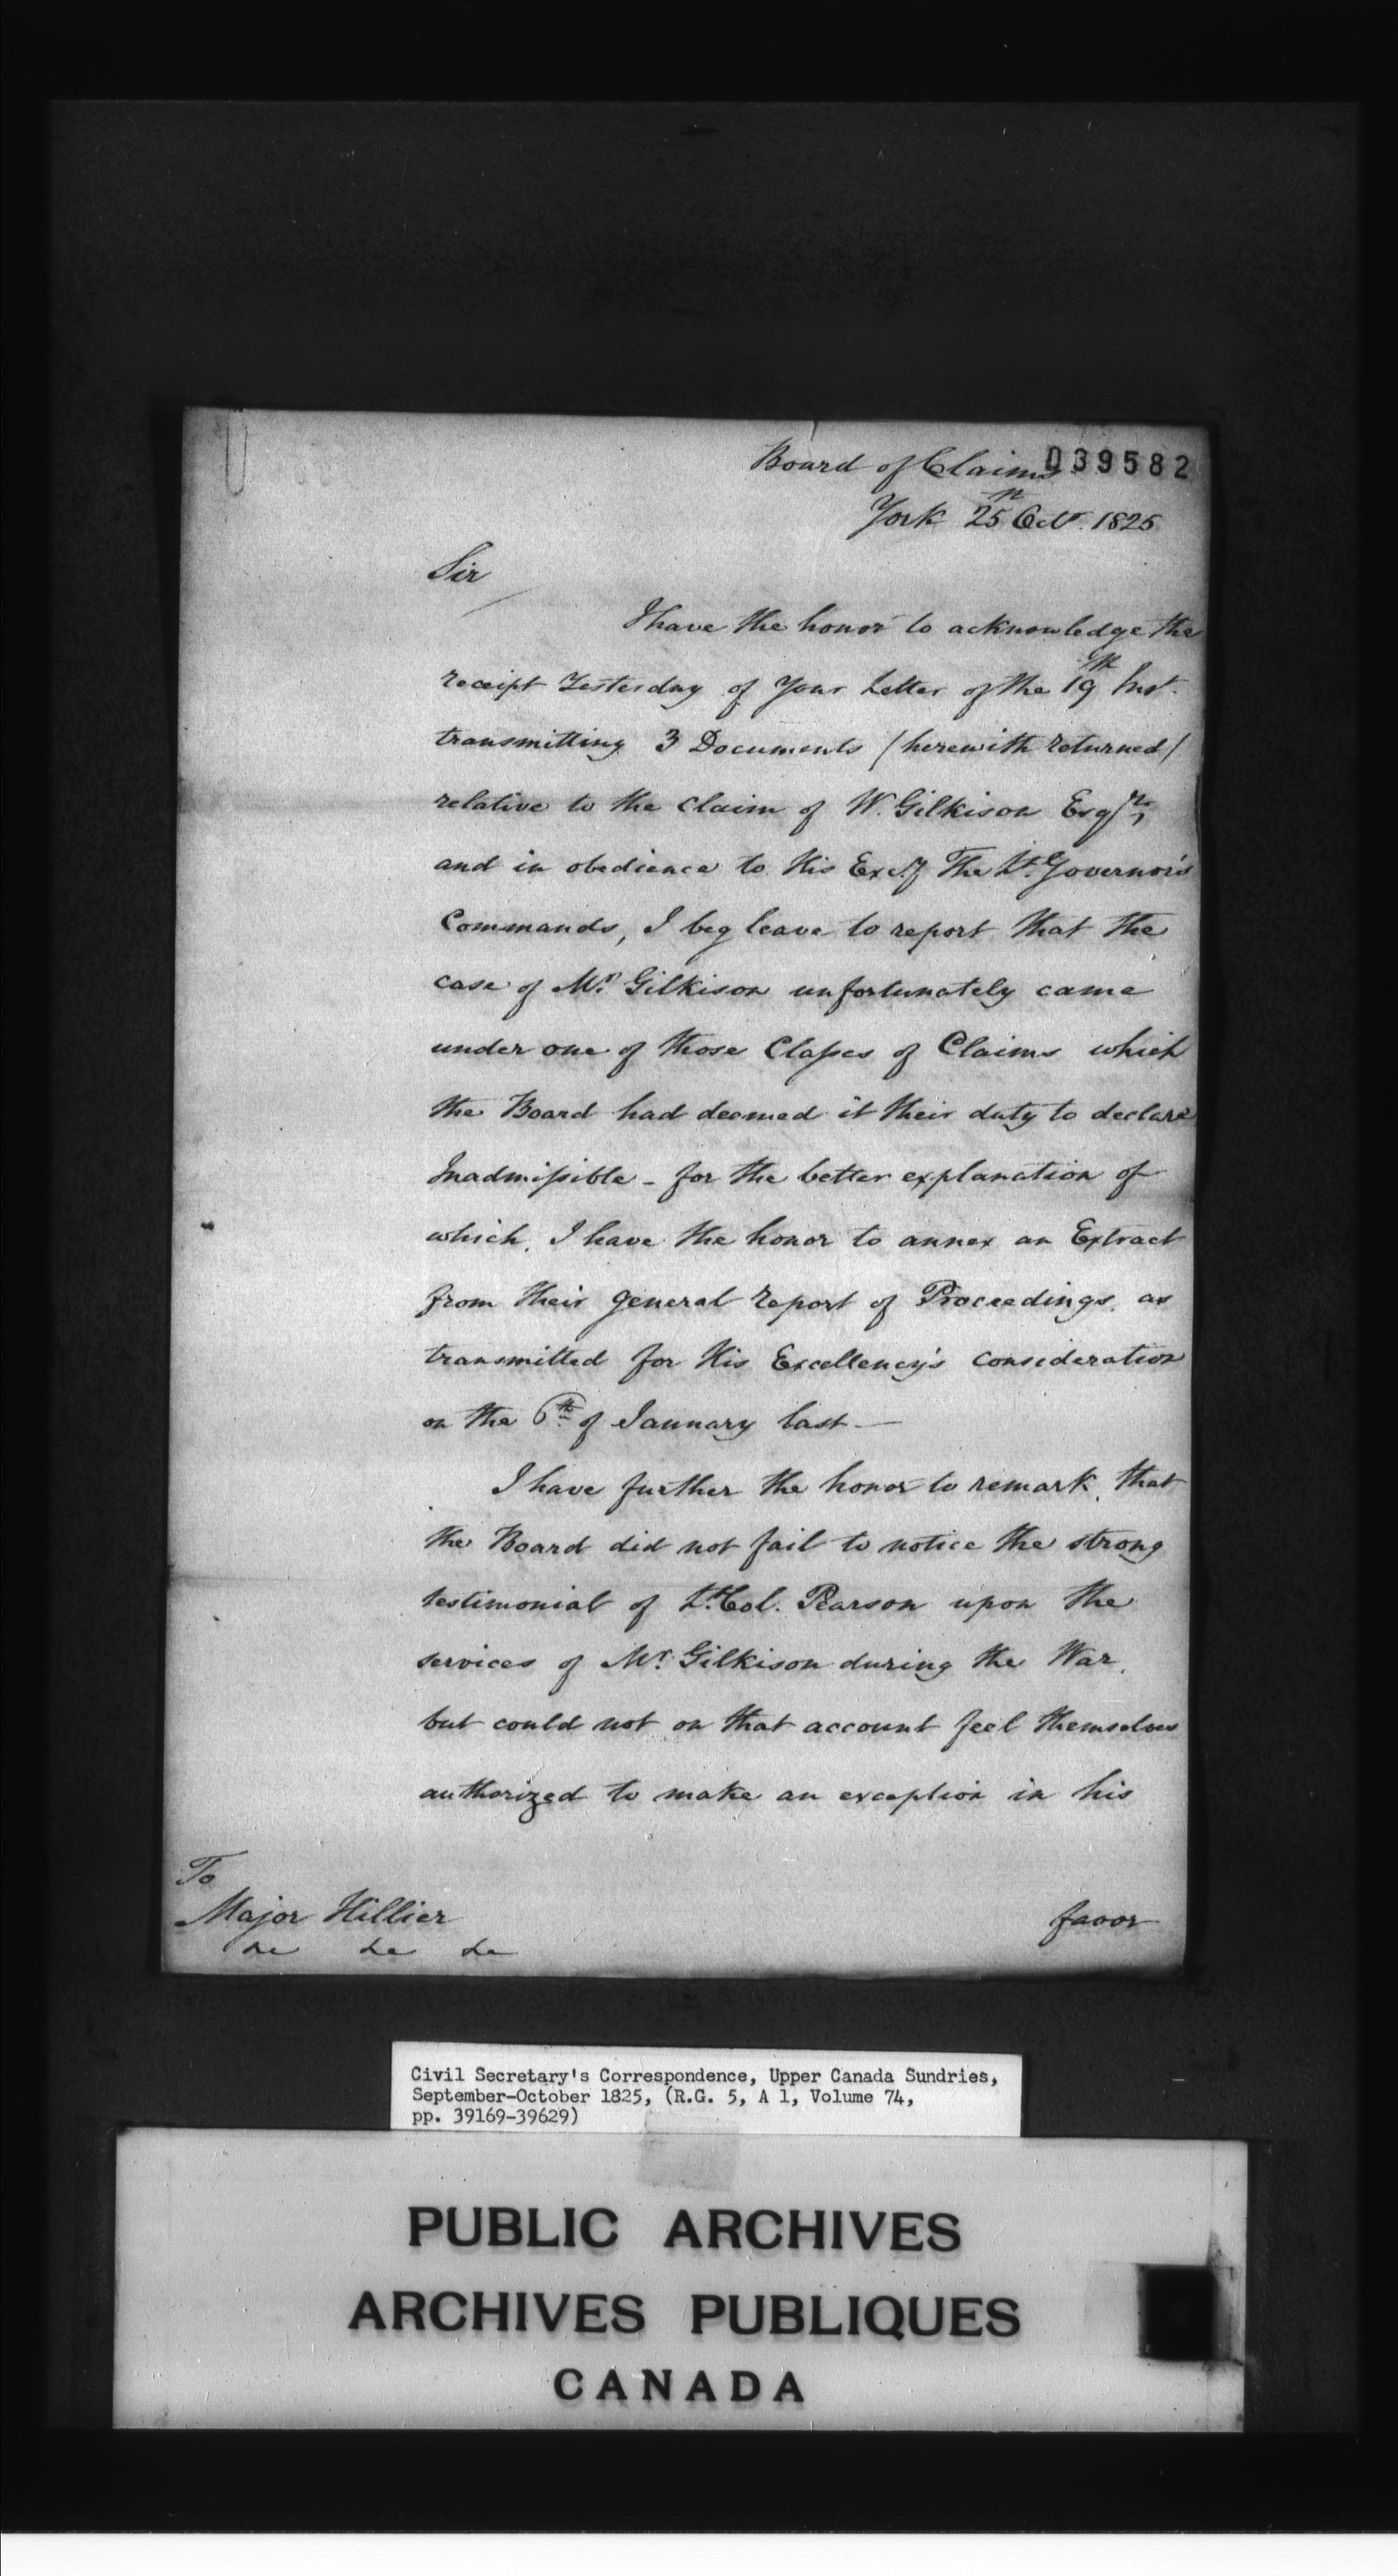 Board of Claims 039582
York 25th Octr. 1825
Sir
I have the honor to acknowledge the
receipt Yesterday of Your Letter of the 19th Inst.
transmitting 3 Documents /herewith returned/
relative to the claim of W. Gilkison Esqre,
and in obedience to His Excy The Lt. Governor's
Commands, I beg leave to report that the
case of Mr. Gilkison unfortunately came
under one of those Classes of Claims which
the Board had deemed it their duty to declare
Inadmissible - for the better explanation of
which, I have the honor to annex an Extract
from their general report of Proceedings, as
transmitted for His Excellency's consideration
on the 6th of January last —
I have further the honor to remark, that
the Board did not fail to notice the strong
testimonial of Lt. Col. Pearson upon the
services of Mr. Gilkison during the War,
but could not on that account feel themselves
authorized to make an exception in his
favor
To
Major Hillier
&c &c &c
Civil Secretary's Correspondence, Upper Canada Sundries,
September-October 1825, (R.G. 5, A 1, Volume 74,
pp. 39169-39629)
PUBLIC ARCHIVES
ARCHIVES PUBLIQUES
CANADA